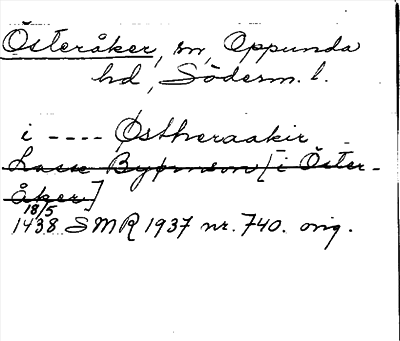 Österåker, sn, Oppunda
hd, Söderm. l.
i ---- Østheraakir
Lasse Bypmson [i Öster-
åker]
18/5
1438 SMR 1937 nr. 740. orig.